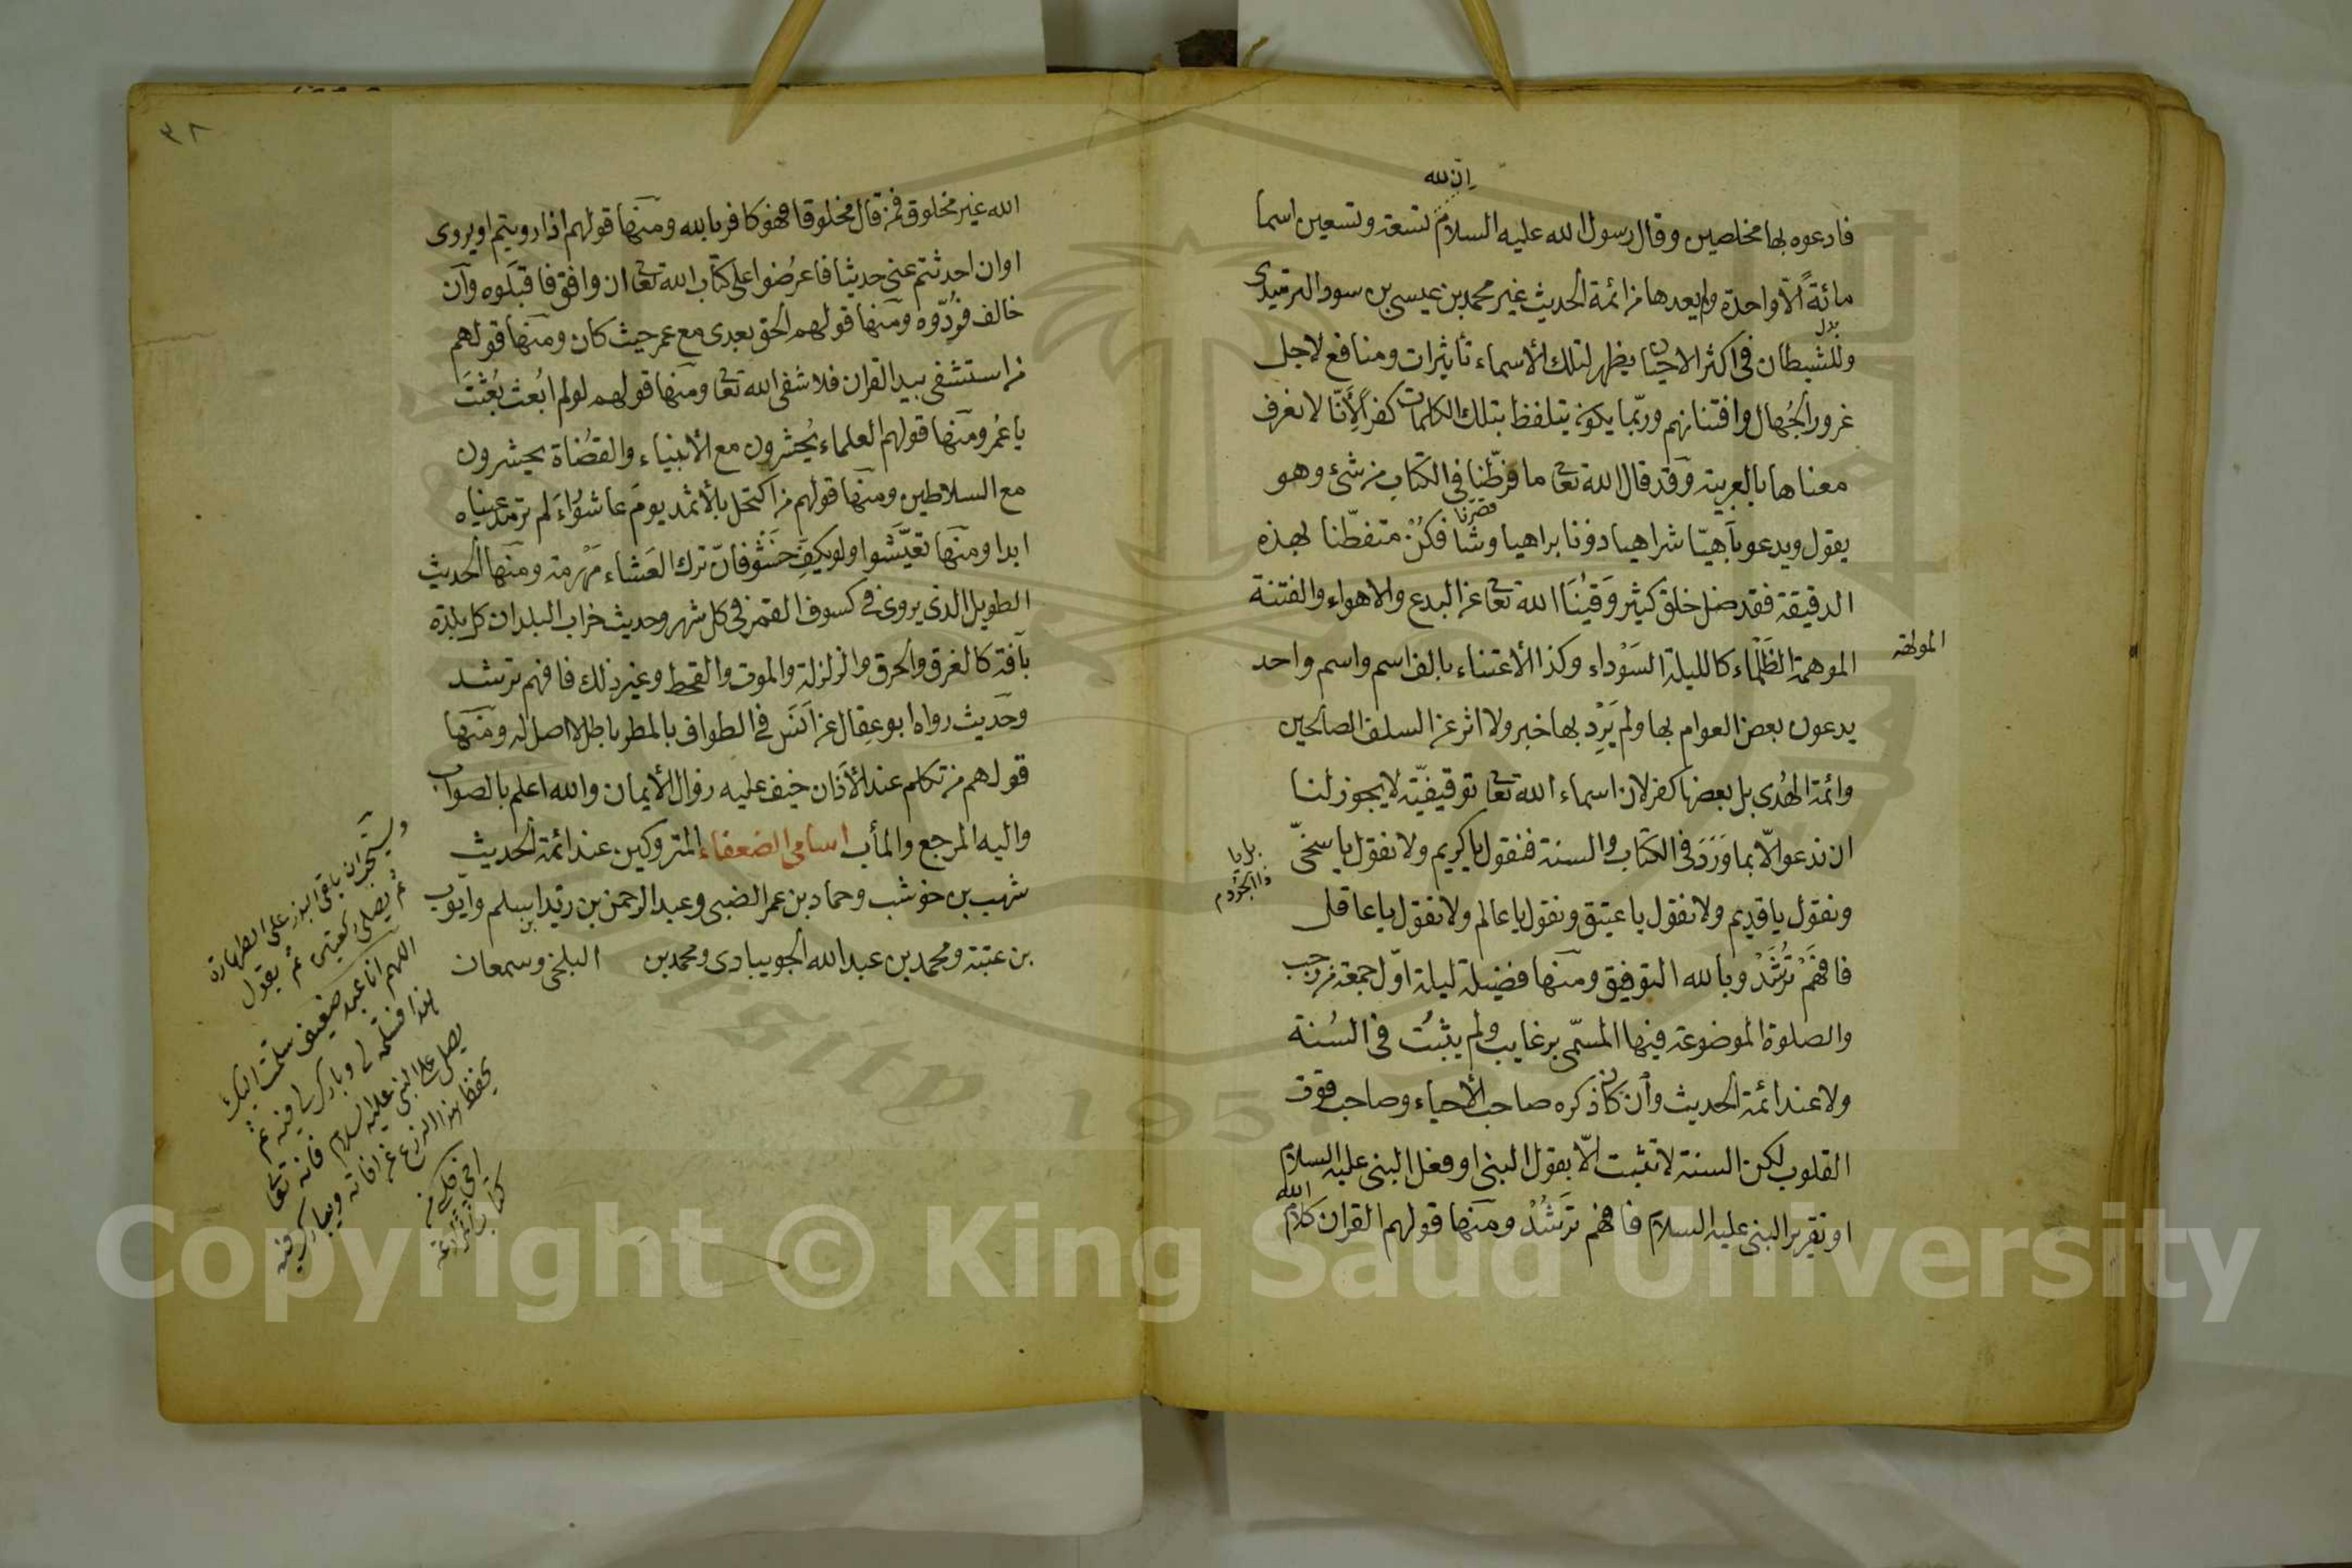 ان لله
فادعوه بها مخلصين وقال رسول الله عليه السلام تسعة وتسعين اسما
مائة الا واحدة ولم يعدها من ائمة الحديث غير محمد بن عيسى بن سود الترمذى
وللشيطان فى اكثر الاحيان يظهر لتلك الأسماء تأثيرات ومنافع لاجل
غرور الجُهال وافتتانهم وربّما يكون يتلفظ بتلك الكلمات كفرا لأَنّا لا نعرف
معناها بالعربية وقد قال الله تعا ما فرّطنا فى الكتاب من شئ وهو
قصرنا
يقول ويدعو بآهيّا شراهيا دونا براهيا وشا فكُنْ متفطّنا لهذه
الدقيقة فقد ضل خلق كثير وَقينَا الله تعا عن البدع والاهواء والفتنة
المولهة
الموهمة الظَلْماء كالليلة السَوْداء وكذا الأعتناء بالف اسم واسم واحد
يدعون بعض العوام بها ولم يَرِد بها خبر ولا اثر عن السلف الصالحين
وائمة الهُدى بل بعضها كفر لان اسماء الله تعا توقيفيّة لا يجوز لنا
ان ندعو الّا بما وَرَدَ فى الكتاب والسنة فنقول يا كريم ولا نقول يا سخىّ
بل يا
ونقول يا قديم ولا نقول يا عتيق ونقول يا عالم ولا نقول يا عاقل
فافهَمْ تُرْشَدْ وبالله التوفيق ومنها فضيلة ليلة اوّل جمعة من رجب
والصلوة الموضوعة فيها المسمّى برغايب ولم يثبُت فى السُنة
ولا عند ائمة الحديث وان كان ذكره صاحب الأحياء وصاحب قوت
القلوب لكن السنة لا تثبت الّا بقول النبى او فعل النبى عليه السلام
او تقرير النبى عليه السلام فافهم ترَشُدْ ومنها قولهم القران كلام
الله
٣٨
الله غير مخلوق فمن قال مخلوقا فهو كافر بالله ومنها قولهم اذا رويتم او يروى
او ان احدثتم عنى حديثا فاعرُضوا على كتاب الله تعا ان وافق فاقبَلوه وان
خالف فرُدّوه ومنها قولهم الحق بعدى مع عمر حيث كان ومنها قولهم
من استشفى بيد القران فلا شفى الله تعا ومنها قولهم لو لم ابُعث بُعثتَ
يا عُمر ومنها قولهم العلماء يُحشرون مع الأنبياء والقضُاة يحشرون
مع السلاطين ومنها قولهم من اكتحل بالأثمد يومَ عاشوُاءَ لم ترمَد عيناه
ابدا ومنها تعيّشوا ولو بكفِّ حَشَفٍ فانّ ترك العَشاء مَهْرمة ومنها الحديث
الطويل الذى يروى فى كسوف القمر فى كل شهر وحديث خراب البلدان كل بلدة
بآفة كالغرق والحرق والزلزلة والموت والقحط وغير ذلك فافهم ترشد
وحديث رواه ابو عِقال عن اَنَس فى الطواف بالمطر باطل لا اصل له ومنها
قولهم من تكلم عند الأذان خيف عليه زوال الأيمان والله اعلم بالصواب
واليه المرجع والمأب اسامى الضعفاء المتروكين عند ائمة الحديث
شهب بن خوشب وحماد بن عمر الضبى وعبد الرحمن بن زيد ابن سلم وايوب
بن عتبة ومحمد بن عبد الله الجويبادى ومحمد بن البلخى وسمعان
على الطهارة
ثم يصلى ركعتين ثم يقول
اللهم انا عبد ضعيف سلمت اليك
هذا فسلمه لى وبارك لى فيه ثم
يصل على النبى عليه السلام فانه تعا
يحفظ هذا الزرع عن افاته ويبارك فيه